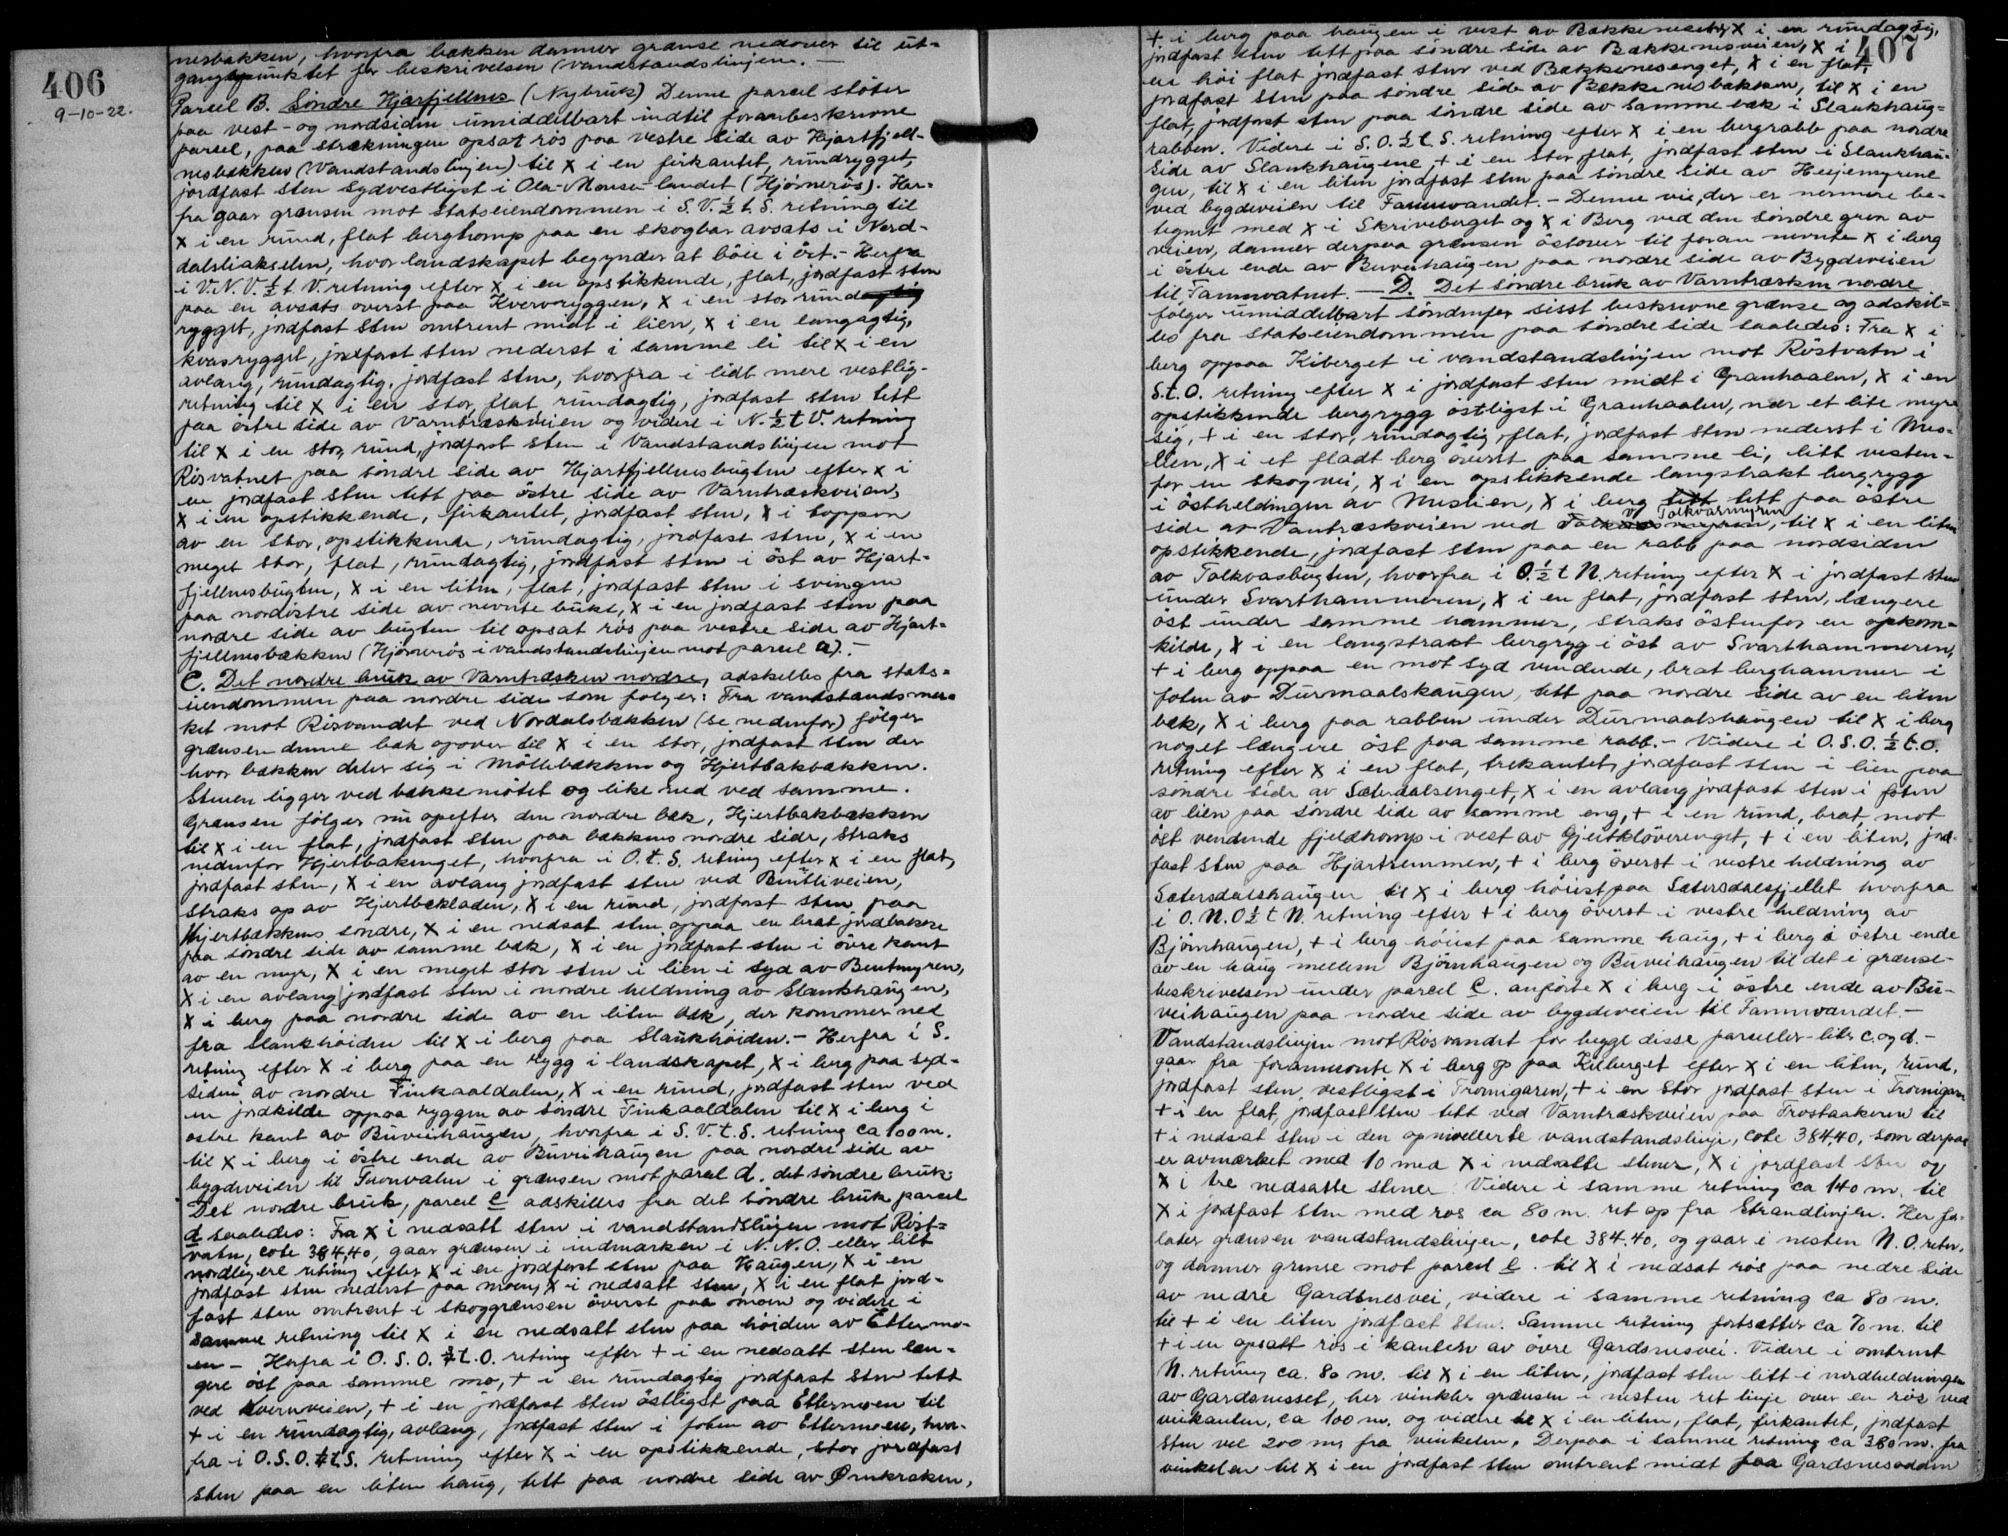 406
9-10-22.
nesbækken, hvorfra bækken danner grænse nedover til ut-
gangspunktet for beskrivelsen (vandstandslinjen. —
Parsel B. Söndre Hjarfjellnes (Nybruk) Denne parsel stöter
paa vest- og nordsiden umiddelbart indtil foranbeskrevne
parsel, paa strekningen opsat rös paa vestre side av Hjartfjell-
nesbækken (Vandstandslinjen) til X i en firkantet, rundrygget,
jordfast sten sydvestligst i Ola-Monsa-landet (Hjörnerös). Her-
fra gaar grænsen mot statseiendommen i S. V. ½ t. S. retning til
X i en rund, flat berghomp paa en skogbar avsats i Nord-
dalsliakselen, hvor landskapet begynder at böie i öst.- Herfra
i V. N. V. ½ t V. retning efter X i en opstikkende, flat, jordfast sten
paa en avsats överst paa Hvervoryggen, X i en stor rund
rygget, jordfast sten omtrent midt i lien, X i en langagtig,
kvasrygget, jordfast sten nederst i samme li til X i en
avlang, rundagtig, jordfast sten, hvorfra i lidt mere vestlig-
retning til X i en stor, flat rundagtig, jordfast sten tett
paa östre side av Varntræskveien og videre i N. ½ t V. retning
til X i en stor, rund, jordfast sten i Vandstandslinjen mot
Rösvatnet paa söndre side av Hjartfjellnesbugten efter X i
en jordfast sten tett paa östre side av Varntræskveien,
X i en opstikkende, firkantet, jordfast sten, X i toppen
av en stor, opstikkende, rundagtig, jordfast sten, X i en
meget stor, flat, rundagtig, jordfast sten i öst av Hjart-
fjellnesbugten, X i en liten, flat, jordfast sten i svingen
paa nordöstre side av nevnte bukt, X i en jordfast sten paa
nordre side av bugten til opsat rös paa vestre side av Hjart-
fjellnesbækken (Hjörnerös i vandstandslinjen mot parsel a). -
C. Det nordre bruk av Varntræsken nordre, adskilles fra stats-
eiendommen paa nordre side som folger: Fra vandstandsmer-
ket mot Rösvandet ved Nordalsbækken (se nedenfor) fölger
grænsen denne bæk opover til X i en stor, jordfast sten der
hvor bækken deler sig i Möllebækken og Hjertbakbækken.
Stenen ligger ved bækkemötet og like ned ved samme.
Grænsen fölger nu opefter den nordre bæk, Hjertbakbækken
til X i en flat, jordfast sten paa bækkens nordre side, straks
nedenfor Hjertbakenget, hvorfra i O. t. S. retning efter X i en flat,
jordfast sten, X i en avlang jordfast sten ved Bentliveien,
straks op av Hjertbekladen, X i en rund, jordfast sten paa
Hjertbækkens söndre, X i en nedsat sten oppaa en brat jordbakke
paa söndre side av samme bæk, X i en jordfast sten i övre kant
av en myr, X i en meget stor sten i lien i syd av Bentmyren,
X i en avlang jordfast sten i nordre heldning av Slankhaugen,
X i berg paa nordre side av en liten bæk, der kommer ned
fra Slankhöiden til X i berg paa Slankhöiden.- Herfra i S.
retning efter X i berg paa en rygg i landskapet, X i berg paa syd-
siden av nordre Finkaaldalen, X i en rund, jordfast sten ved
en jordkilde oppaa ryggen av söndre Finkaaldalen til X i berg i
östre kant av Buveihaugen, hvorfra i S. V. t. S. retning ca 100 m.
til X i berg i östre ende av Buveihaugen paa nordre side av
bygdeveien til i grænsen mot parsel d. det söndre bruk.
Det nordre bruk, parsel C adskilles fra det söndre bruk parsel
d saaledes: Fra X i nedsatt sten i vandstandslinjen mot Röst-
vatn, cote 384,40, gaar grænsen i indmarken i N. N. O. eller litt
nordligere retning efter X i en jordfast sten paa Haugen, X i en
jordfast sten nederst paa moen, X i nedsatt sten, X i en flat jord-
fast sten omtrent i skoggrænsen överst paa moen og videre i
samme retning til X i en nedsatt sten paa höiden av Ettermo-
en- Herfra i O. S. O. ¾ t. O. retning efter + i en nedsatt sten læn-
gere öst paa samme mo, + i en rundagtig jordfast sten tett
ved Kvernveien, + i en jordfast sten östligst paa Ettermoen til
+ i en rundagtig, avlang, jordfast sten i foten av Ettermoen, hvor-
fra i O. S. O. t. S. retning efter X i en opstikkende, stor jordfast
sten paa en liten haug, tett paa nordre side av Ornkroken,
407
+ i berg paa haugen i vest av Bækkeneset, X i en rundagtig,
jordfast sten tett paa söndre side av Bækkenesveien, X i
en höi flat jordfast sten ved Bækkenesenget, X i en flat,
jordfast sten paa söndre side av Bækkenesbækken, til X i en
flat, jordfast sten paa söndre side av samme bæk i Slankhaug-
rabben. Videre i S. O. ½ t. S. retning efter X i en bergrabb paa nordre
side av Slankhaugene, + i en stor, flat, jordfast sten i Slankhau-
gen, til X i en liten jordfast sten paa söndre side av Heiemyrene
ved bygdeveien til Famnvandet. - Denne vei, der er nermere be-
tegnet med X i Skriveberget og X i Berg ved den söndre gren av
veien, danner derpaa grænsen östover til foran nevnte X i berg
i östre ende av Buveihaugen paa nordre side av Bygdeveien
til Famnvatnet. — D. Det söndre bruk av Varntræsken nordre
fölger umiddelbart söndenfor sisst beskrevne grænse og adskil-
les fra statseiendommen paa söndre side saaledes: Fra X i
berg oppaa Kiberget i vandstandslinjen mot Röstvatn i
S. t. O. retning efter X i jordfast sten midt i Granhaalen, X i en
opstikkende bergrygg östligst i Granhaalen, nær et lite myr-
sig, + i en stor, rundagtig, flat, jordfast sten nederst i Mes-
lien, X i et fladt berg överst paa samme li, litt vesten-
for en skogvei, X i en opstikkende langstrakt bergrygg
i östheldningen av Meslien, X i berg tett paa östre
side av Vantræskveien ved Tolkvasmyren, til X i en liten
opstikkende, jordfast sten paa en rabb paa nordsiden
av Tolkvasbugten, hvorfra i O. ½ t N. retning efter X i jordfast sten
under Svarthammeren, X i en flat, jordfast sten, længere
öst under samme hammer, straks östenfor en opkom-
kilde, X i en langstrakt bergryg i öst av Svarthammeren,
+ i berg oppaa en mot syd vendende, brat berghammer i
foten av Durmaalshaugen, tett paa nordre side av en liten
bæk, X i berg paa rabben under Durmaalshaugen til X i berg
noget længere öst paa samme rabb.- Videre i O. S. O. ½ t. O.
retning efter X i en flat, trekantet, jordfast sten i lien paa
söndre side av Sæterdalsenget, X i en avlang jordfast sten i foten
av lien paa söndre side av samme eng, + i en rund, brat, mot
öst vendende fjeldkomp i vest av Gjeitklöverenget, + i en liten, jord-
fast sten paa Hjartremmen, + i berg överst i vestre heldning av
Sætersdalshaugen til X i berg höiest paa Sætersdalsfjellet hvorfra
i O. N. O ½ t N. retning efter + i berg överst i vestre heldning av
Björnhaugen, + i berg höiest paa samme haug, + i berg i östre ende
av en haug mellem Björnhaugen og Buveihaugen til det i grænse-
beskrivelsen under parsel C. anförte X i berg i östre ende av Bu-
veihaugen paa nordre side av bygdeveien til Famnvandet. -
Vandstandslinjen mot Rösvandet for begge disse parseller- litr. c. og d. -
gaar fra forannevnte X i berg op paa Kilberget efter X i en liten, rund,
jordfast sten vestligst i Tromigaren, + i en stor jordfast sten i Tromigaren
+ i en flat, jordfast sten tett ved Varntræskveien paa Trostaakeren til
+ i nedsat sten i den opnivellerte vandstandslinje, cote 384.40, som derpaa
er avmærket med 10 med X i nedsatte stener, X i jordfast sten og
X i tre nedsatte stener. Videre i samme retning ca 140 m. til
X i jordfast sten med rös ca 80 m. ret op fra Strandlinjen. Her for-
later grænsen vandstandslinjen, cote 384.40, og gaar i nesten N. O. retn.
og danner grense mot parsel e. til X i nedsat rös paa nedre side
av nedre Gardsnesvei, videre i samme retning ca 80 m.
til + i en liten jordfast sten. Samme retning fortsætter ca 70 m. til
+ i en opsatt rös i kanten av övre Gardsnesvei. Videre i omtrent
N. retning ca. 80 m. til X i en liten, jordfast sten litt i nordheldningen
av Gardsnesset, her vinkler grænsen i nesten ret linje over en rös ved
veikanten, ca 100 m. og videre til X i en liten, flat, firkantet, jordfast
sten vel 200 m. fra vinkelen. Derpaa i samme retning ca 380 m. fra
vinkelen til X i en jordfast sten omtrent midt paa Gardsnesodden